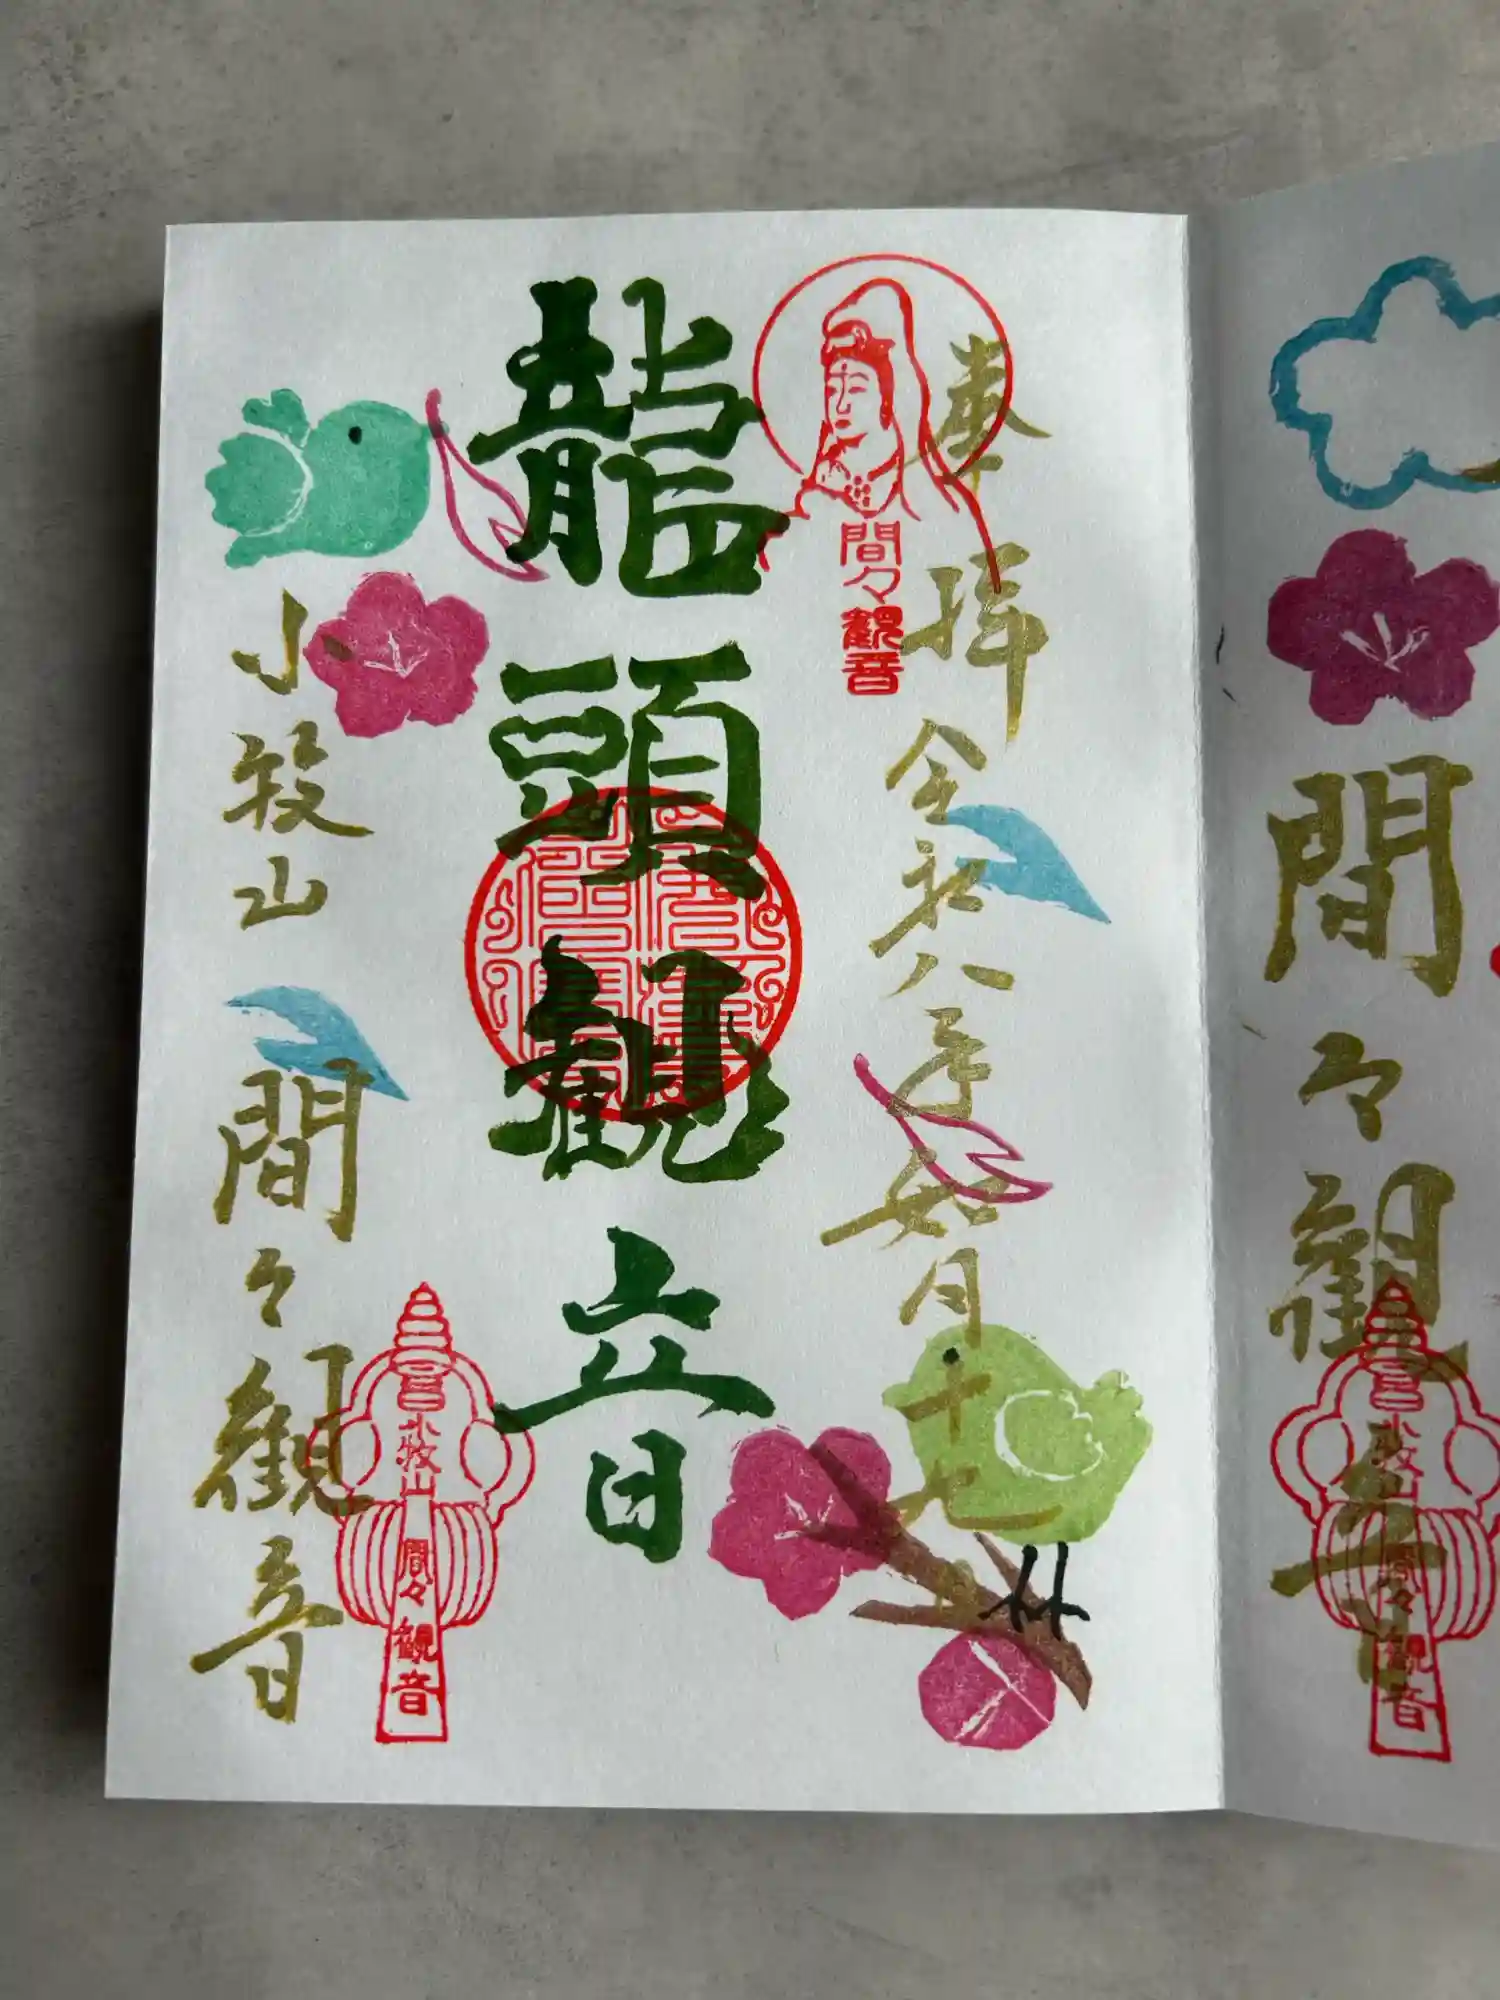 間々観音
小牧山
間々観音
奉拝
令和八年如月十七日
間々観音
龍頭観音
小牧山
間々観音
小牧山
間々観音